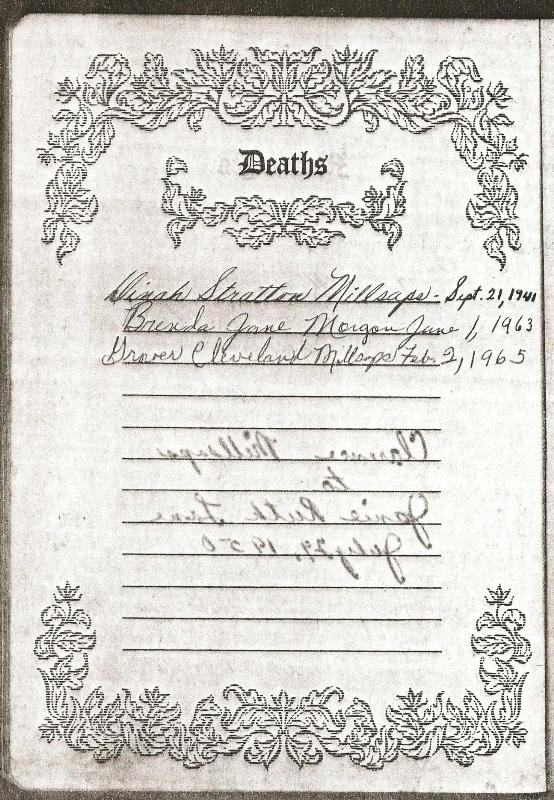 Deaths
Dinah Stratton Millsaps - Sept. 21, 1941
Brenda Jane Morgan June 1, 1963
Grover Cleveland Millsaps Feb. 2, 1965
Clarence Millsaps
to
Janie Ruth Lane
July 29, 1950